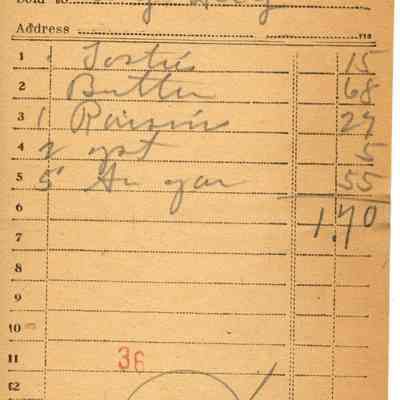 Sold to
Address
1 Tostie 15
2 Butter 68
3 1 Raisins 27
4 2 yst 5
5 5 sugar 55
6 1.70
7
8
9
10
11 36
12